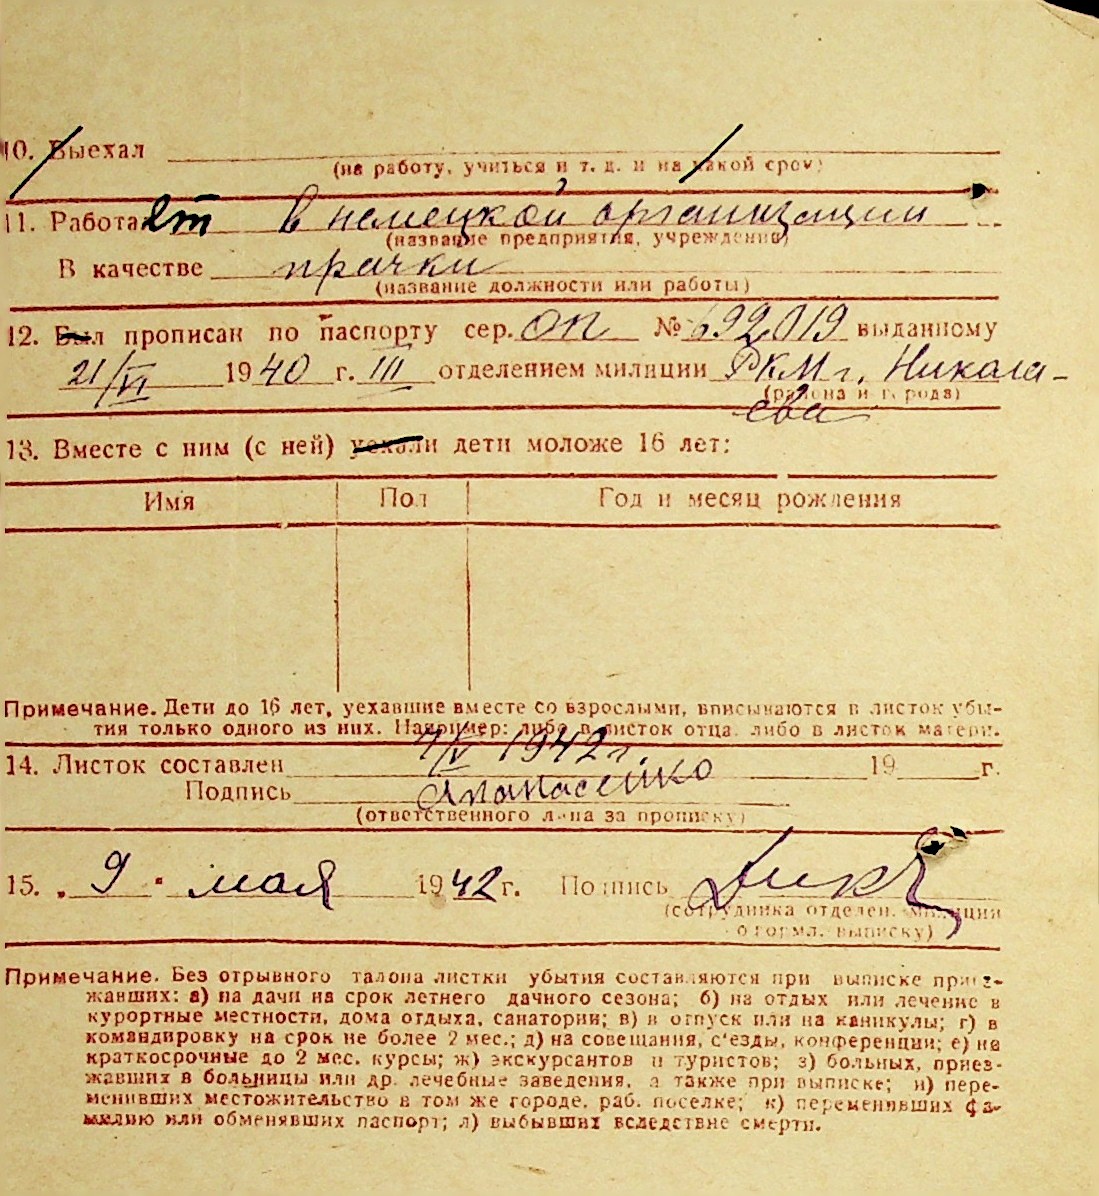 10. Выехал
(на работу, учиться и т. д. и на какой срок)
11. Работает в немецкой организации
(название предприятия, учреждения)
В качестве прачки
(название должности или работы)
12. Был прописан по паспорту сер. ОП № 692019 выданному
21/VI 1940 г. III отделением милиции РКМ г. Никола-
(района и города)
ева
13. Вместе с ним (с ней) уехали дети моложе 16 лет:
Имя Пол Год и месяц рождения
Примечание. Дети до 16 лет, уехавшие вместе со взрослыми, вписываются в листок убы-
тия только одного из них. Например: либо в листок отца, либо в листок матери.
14. Листок составлен 4/V 1942 г. 19 г.
Подпись Апанасенко
(ответственного лица за прописку)
15. „ 9 " мая 1942 г. Подпись
(сотрудника отделен. милиции
оформл. выписку)
Примечание. Без отрывного талона листки убытия составляются при выписке приез-
жавших: а) на дачи на срок летнего дачного сезона; б) на отдых или лечение в
курортные местности, дома отдыха, санатории; в) в отпуск или на каникулы; г) в
командировку на срок не более 2 мес.; д) на совещания, с'езды, конференции; е) на
краткосрочные до 2 мес. курсы; ж) экскурсантов и туристов; з) больных, приез-
жавших в больницы или др. лечебные заведения, а также при выписке; и) пере-
менивших местожительство в том же городе, раб. поселке; к) переменивших фа-
милию или обменявших паспорт; л) выбывших вследствие смерти.